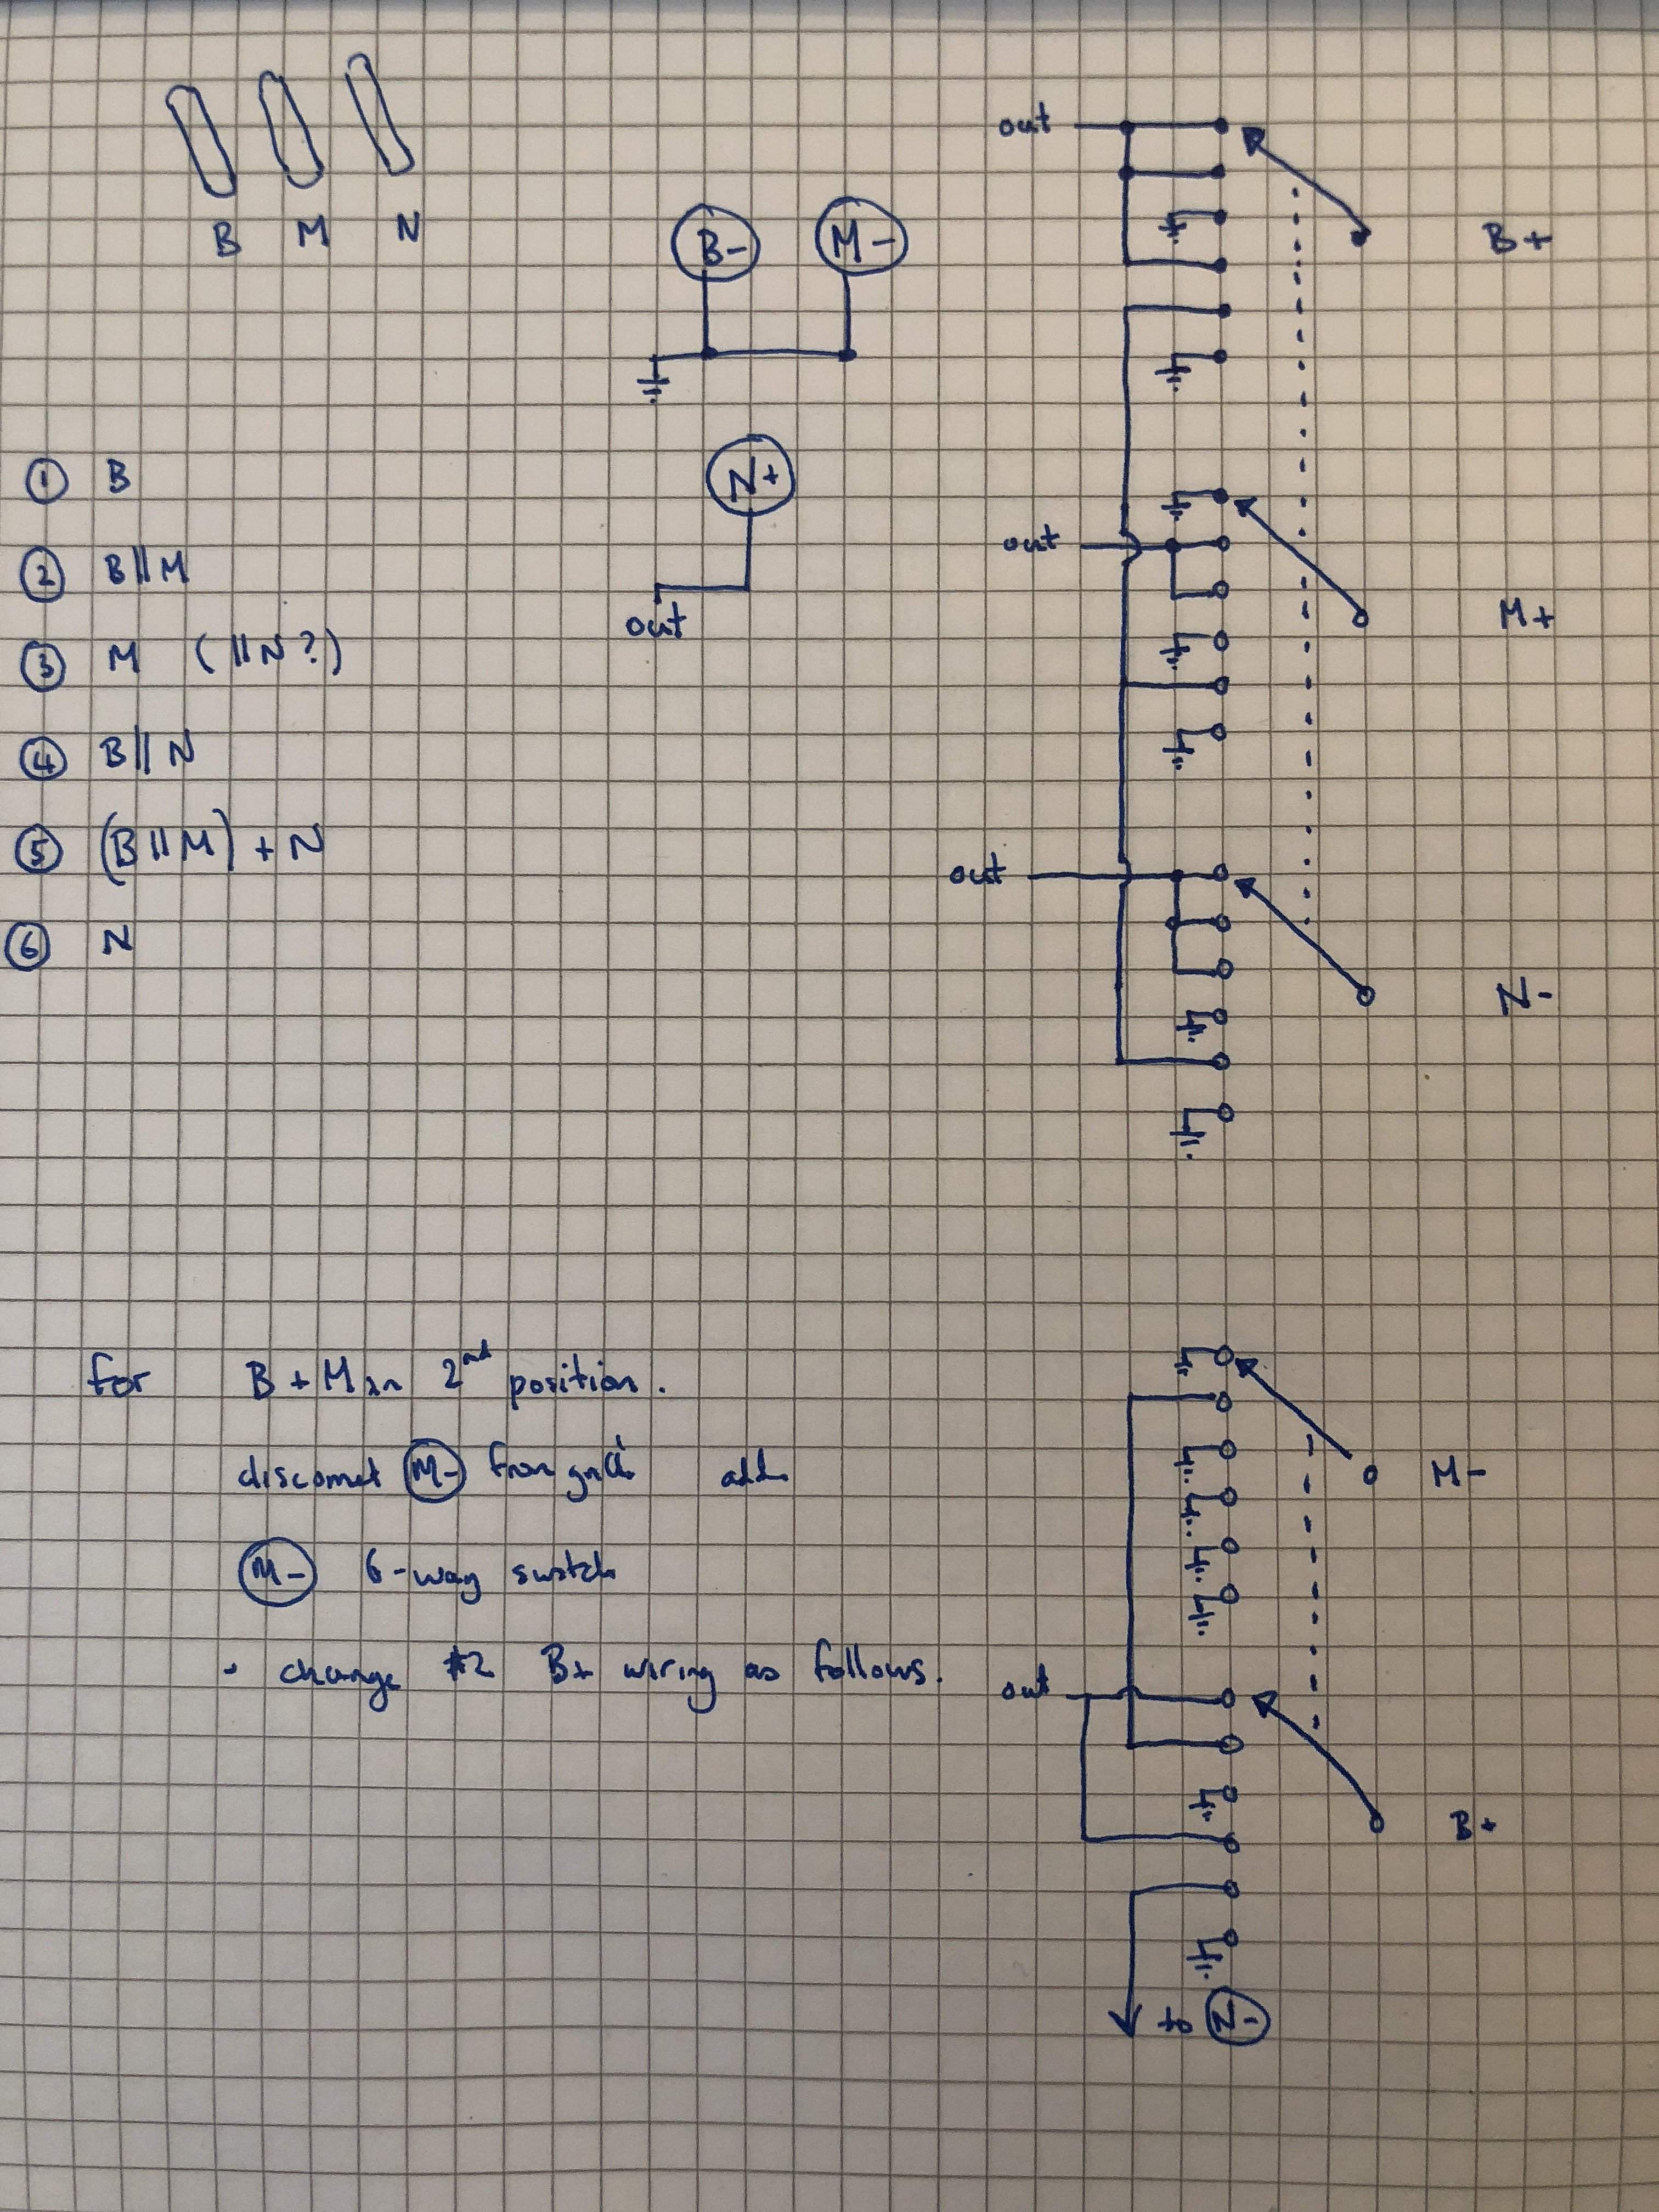 B M N
B- M-
N+
out
① B
② B||M
③ M (||N?)
④ B||N
⑤ (B||M) + N
⑥ N
out
B+
out
M+
out
N-
for B + M in 2nd position.
disconnect M- from gnd add
M- 6-way switch
• change #2 B+ wiring as follows.
M-
out
B+
to N-